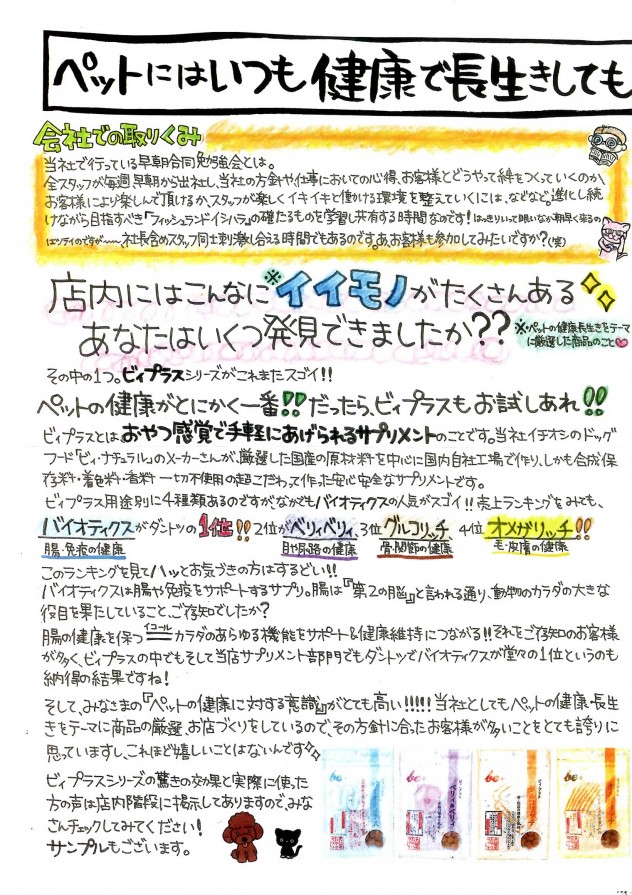 ペットにはいつも健康で長生きしても
会社での取りくみ
当社で行っている早朝合同勉強会とは。
全スタッフが毎週、早朝から出社し、当社の方針や仕事においての心得、お客様とどうやって絆をつくっていくのか、
お客様により楽しんで頂けるか、スタッフが楽しくイキイキと働かける環境を整えていくには、などなど。進化し続
けながら目指すべき「フィッシュランドイシハラ」の確たるものを学習し共有する時間なのです!はっきりいって眠いなか朝早く来るの
はツライのですが〜〜、社長含めスタッフ同士刺激し合える時間でもあるのです。あ、お客様も参加してみたいですか?(笑)
店内にはこんなに※イイモノがたくさんある
あなたはいくつ発見できましたか??
※・ペットの健康長生きをテーマ
に厳選した商品のこと
その中の1つ。ビィプラスシリーズがこれまたスゴイ!!
ペットの健康がとにかく一番!!だったら、ビィプラスもお試しあれ!!
ビィプラスとは、おやつ感覚で手軽にあげられるサプリメントのことです。当社イチオシのドッグ
フード「ビィ・ナチュラル」のメーカーさんが、厳選した国産の原材料を中心に国内自社工場で作り、しかも合成保
存料・着色料・香料一切不使用の超こだわって作った、安心安全なサプリメントです。
ビィプラス用途別に4種類あるのですが、なかでもバイオティクスの人気がスゴイ!!売上ランキングをみても、
バイオティクスがダントツの1位!!2位がベリィベリィ、3位グルコリッチ、4位オメガリッチ!!
腸・免疫の健康 目や尿路の健康 骨・関節の健康 毛・皮膚の健康
このランキングを見てハッとお気づきの方はするどい!!
バイオティクスは腸や免疫をサポートするサプリ。腸は『第2の脳』と言われる通り、動物のカラダの大きな
役目を果たしていること、ご存知でしたか?
腸の健康を保つイコールカラダのあらゆる機能をサポート&健康維持につながる!!それをご存知のお客様
が多く、ビィプラスの中でもそして当店サプリメント部門でもダントツでバイオティクスが堂々の1位というのも
納得の結果ですね!
そして、みなさまの『ペットの健康に対する意識』がとても高い!!!!!当社としてもペットの健康・長生
きをテーマに商品の厳選、お店づくりをしているので、その方針に合ったお客様が多いことをとても誇りに
思っていますし、これほど嬉しいことはないんです
ビィプラスシリーズの驚きの効果と実際に使った
方の声は店内階段に掲示してありますので、みな
さんチェックしてみてください!
サンプルもございます。